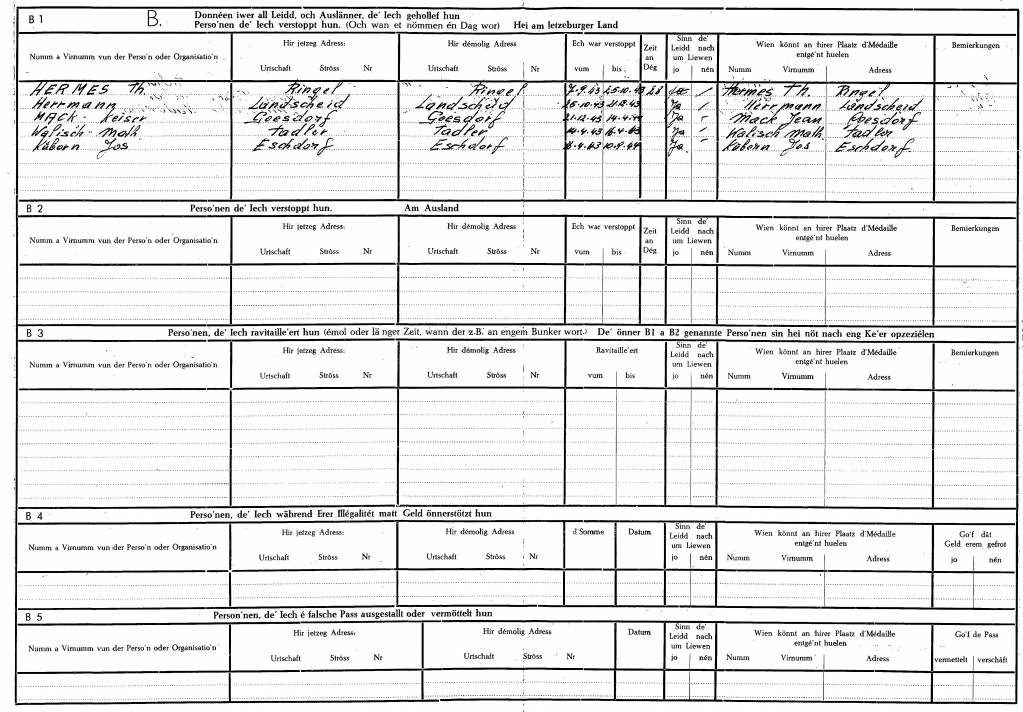 B 1 B. Donnéen iwer all Leidd, och Auslänner, de' Iech gehollef hun
Perso'nen de' Iech verstoppt hun. (Och wan et nömmen én Dag wor) Hei am letzeburger Land
Numm a Virnumm vun der Perso'n oder Organisatio'n Hir jetzeg Adress: Hir démolig Adress Ech war verstoppt Zeit an Dég Sinn de' Leidd nach um Liewen Wien könnt an hirer Plaatz d'Médaille entgé'nt huelen Bemierkungen
Urtschaft Ströss Nr Urtschaft Ströss Nr vum bis jo nén Numm Virnumm Adress
HERMES Th. Ringel Ringel 7-9.43 25.10.43 28 / Hermes Th. Ringel
Herrmann Landscheid Landscheid 25.10.43 21.12.43 Ja / Herrmann Landscheid
MACK - Keiser Goesdorf Goesdorf 21.12.43 14.4.44 Ja Mack Jean Goesdorf
Walisch Math. Tadler Tadler 14.4.43 Ja Walisch Math. Tadler
Kabern Jos Eschdorf Eschdorf 10.9.44 Ja. Kabern Jos Eschdorf
B 2 Perso'nen de' Iech verstoppt hun. Am Ausland
Numm a Virnumm vun der Perso'n oder Organisatio'n Hir jetzeg Adress: Hir démolig Adress Ech war verstoppt Zeit an Dég Sinn de' Leidd nach um Liewen Wien könnt an hirer Plaatz d'Médaille entgé'nt huelen Bemierkungen
Urtschaft Ströss Nr Urtschaft Ströss Nr vum bis jo nén Numm Virnumm Adress
B 3 Perso'nen, de' Iech ravitaille'ert hun (émol oder länger Zeit, wann der z.B. an engem Bunker wort.) De' önner B1 a B2 genannte Perso'nen sin hei nöt nach eng Ke'er opzeziélen
Numm a Virnumm vun der Perso'n oder Organisatio'n Hir jetzeg Adress: Hir démolig Adress Ravitaille'ert Sinn de' Leidd nach um Liewen Wien könnt an hirer Plaatz d'Médaille entgé'nt huelen Bemierkungen
Urtschaft Ströss Nr Urtschaft Ströss Nr vum bis jo nén Numm Virnumm Adress
B 4 Perso'nen, de' Iech während Erer Illégalitét matt Geld önnerstötzt hun
Numm a Virnumm vun der Perso'n oder Organisatio'n Hir jetzeg Adress: Hir démolig Adress d'Somme Datum Sinn de' Leidd nach um Liewen Wien könnt an hirer Plaatz d'Médaille entgé'nt huelen Go'f dât Geld erem gefrot
Urtschaft Ströss Nr Urtschaft Ströss Nr jo nén Numm Virnumm Adress jo nén
B 5 Person'nen, de' Iech é falsche Pass ausgestallt oder vermöttelt hun
Numm a Virnumm vun der Perso'n oder Organisatio'n Hir jetzeg Adress: Hir démolig Adress Datum Sinn de' Leidd nach um Liewen Wien könnt an hirer Plaatz d'Médaille entgé'nt huelen Go'f de Pass
Urtschaft Ströss Nr Urtschaft Ströss Nr jo nén Numm Virnumm Adress vermettelt verschâft